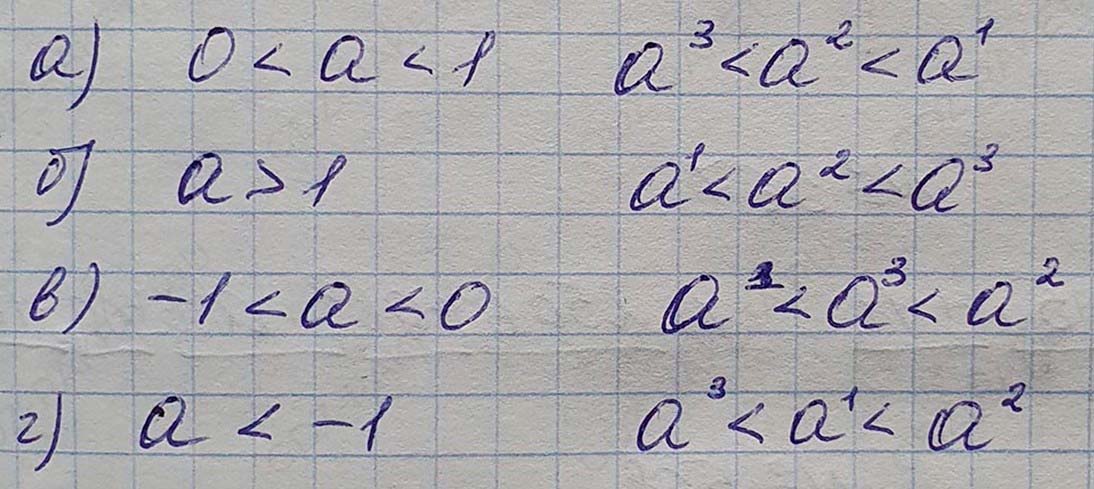 а) 0 < a < 1 a³ < a² < a¹
б) a > 1 a¹ < a² < a³
в) -1 < a < 0 a¹ < a³ < a²
г) a < -1 a³ < a¹ < a²